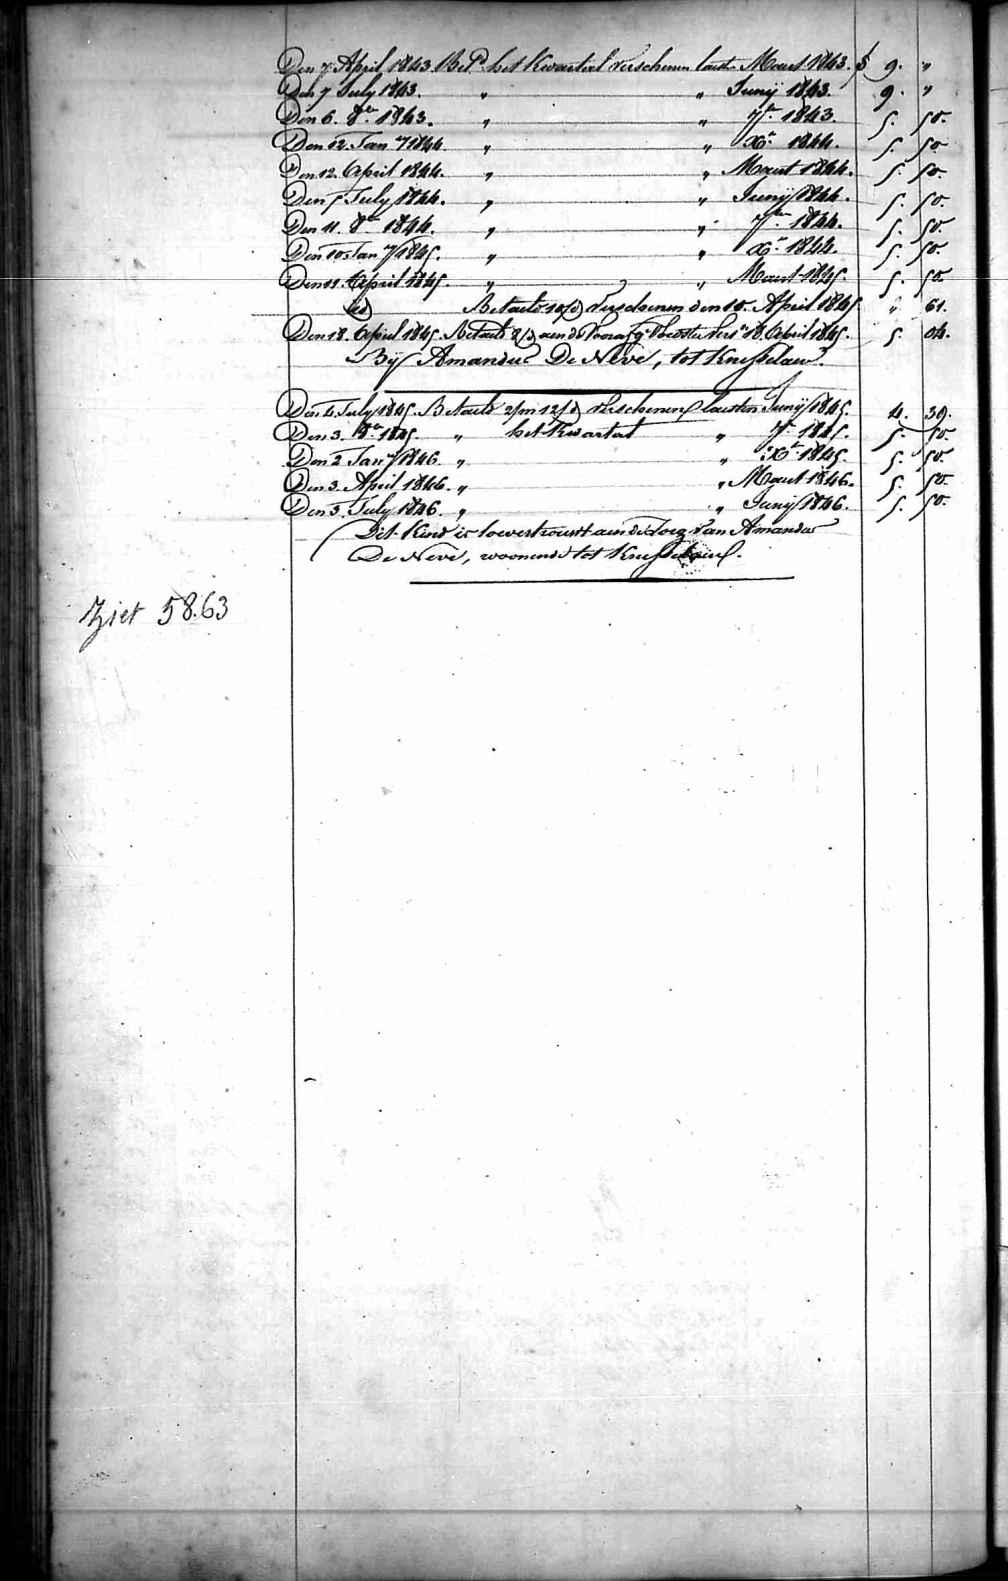 Den 7 April 1843. Betd. het Kwartal verschenen laest Maart 1843. $ 9. "
Den 7 July 1843. " " Junij 1843. 9. "
Den 6. 8er. 1843. " " 7er. 1843. 5. 50.
Den 12 Jany 1844. " " Xr. 1844. 5. 50.
Den 12. April 1844. " " Maart 1844. 5. 50.
Den 5 July 1844. " " Junij 1844. 5. 50.
Den 11. 8er 1844. " " 7er. 1844. 5. 50.
Den 10 Jany 1845. " " Xr. 1844. 5. 50.
Den 11. April 1845. " " Maart 1845. 5. 50.
Betaelt 10/d verschenen den 10. April 1845. " 61.
Den 18. April 1845. Betaelt aen de Voorafg. Voedster vers. 18. April 1845. 5. 04.
Bij Amandus De Neve, tot Knesselaere.
Den 4 July 1845. Betaelt 2/m 12/d verschenen laesten Junij 1845. 4. 39.
Den 3. 8er 1845. " het Kwartal " 7r. 1845. 5. 50.
Den 2 Jany 1846. " " Xr. 1845. 5. 50.
Den 3. April 1846. " " Maart 1846. 5. 50.
Den 3. July 1846. " " Junij 1846. 5. 50.
Dit Kind is toevertrouwt aen de Zorg van Amandus
De Neve, woonende tot Knesselaere.
Ziet 58.63